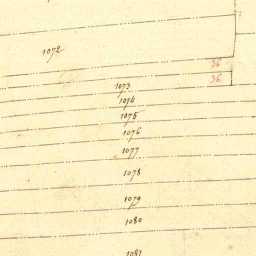 1072
36
36
1073
1074
1075
1076
1077
1078
1079
1080
1081